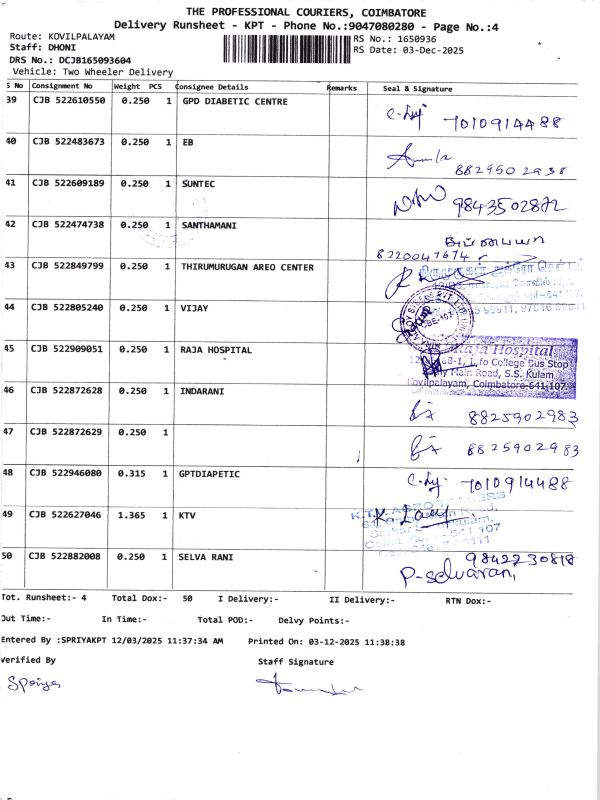 THE PROFESSIONAL COURIERS, COIMBATORE
Delivery Runsheet - KPT - Phone No.:9047080280 - Page No.:4
Route: KOVILPALAYAM
RS No.: 1650936
Staff: DHONI
RS Date: 03-Dec-2025
DRS No.: DCJB165093604
Vehicle: Two Wheeler Delivery
S No Consignment No Weight PCS Consignee Details Remarks Seal & Signature
39 CJB 522610550 0.250 1 GPD DIABETIC CENTRE 7010914488
40 CJB 522483673 0.250 1 EB 8829502938
41 CJB 522609189 0.250 1 SUNTEC 9843502872
42 CJB 522474738 0.250 1 SANTHAMANI
8220047674
43 CJB 522849799 0.250 1 THIRUMURUGAN AREO CENTER
44 CJB 522805240 0.250 1 VIJAY
45 CJB 522909051 0.250 1 RAJA HOSPITAL
Raja Hospital
College Bus Stop
Main Road, S.S. Kulam
Kovilpalayam, Coimbatore-641 107.
46 CJB 522872628 0.250 1 INDARANI 8825902983
47 CJB 522872629 0.250 1 8825902983
48 CJB 522946080 0.315 1 GPTDIAPETIC 7010914488
49 CJB 522627046 1.365 1 KTV
50 CJB 522882008 0.250 1 SELVA RANI 9842230818
P-selvarani
Tot. Runsheet:- 4 Total Dox:- 50 I Delivery:- II Delivery:- RTN Dox:-
Out Time:- In Time:- Total POD:- Delvy Points:-
Entered By :SPRIYAKPT 12/03/2025 11:37:34 AM Printed On: 03-12-2025 11:38:38
Verified By Staff Signature
Spriya